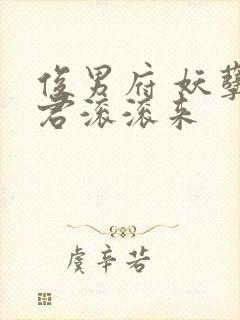 俊男府 妖孽
君滚滚来
虞辛若